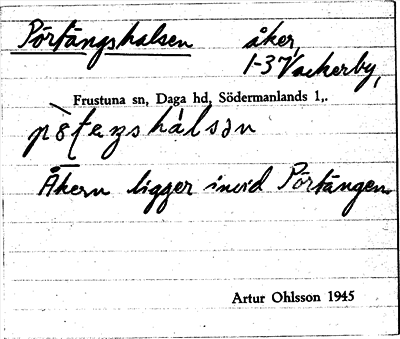 Pörtängshalsen åker,
1-3 Vackerby,
Frustuna sn, Daga hd, Södermanlands l,.
Åkern ligger invid Pörtängen.
Artur Ohlsson 1945